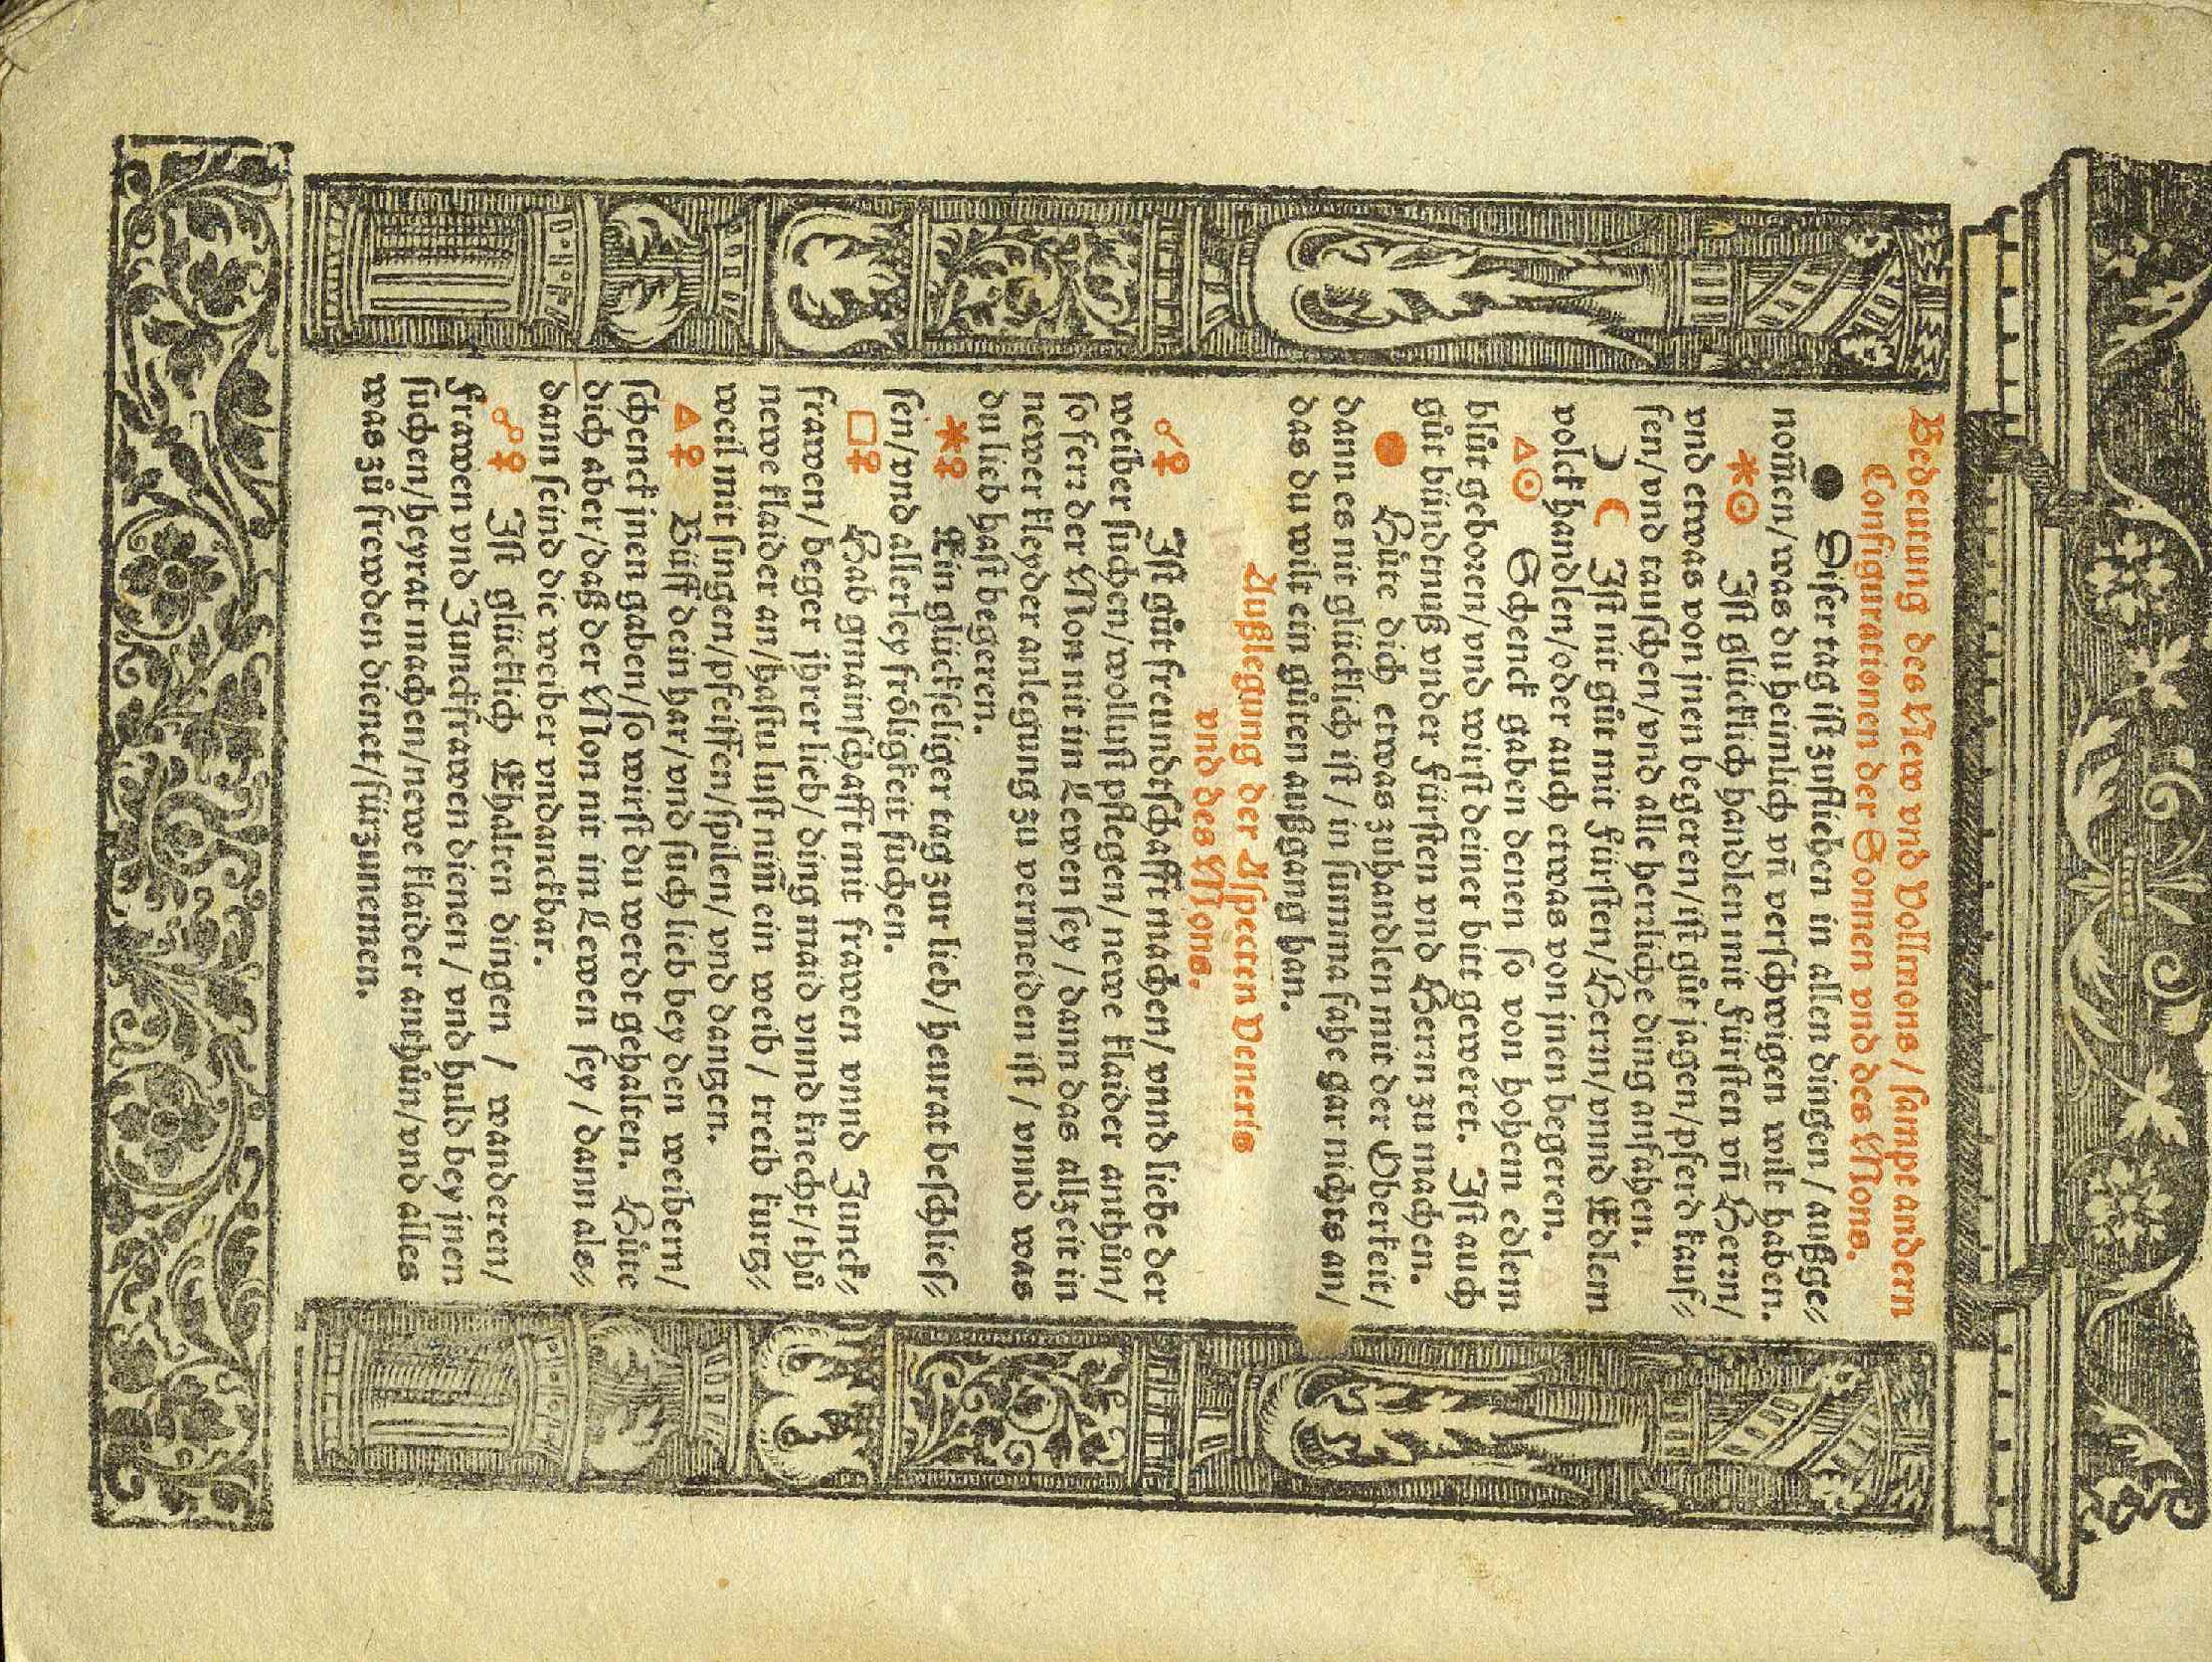 Bedeutung des New vnd Vollmons / sampt andern
Configurationen der Sonnen vnd des Mons.
● Diser tag ist zufliehen in allen dingen / außge⸗
nom̃en / was du heimlich vñ verschwigen wilt haben.
⚹☉ Ist glücklich handlen mit Fürsten vñ Herrn /
vnd etwas von jnen begeren / ist gůt jagen / pferd kauf⸗
fen / vnd tauschen / vnd alle herrliche ding anfahen.
☽ ☾ Ist nit gůt mit Fürsten / Herrn / vnnd Edlem
volck handlen / oder auch etwas von jnen begeren.
△☉ Schenck gaben denen so von hohem edlem
blůt geboren / vnd wirst deiner bitt geweret. Ist auch
gůt bündtnuß vnder Fürsten vnd Herrn zu machen.
● Hůte dich etwas zuhandlen mit der Oberkeit /
dann es nit glücklich ist / in summa fahe gar nichts an /
das du wilt ein gůten außgang han.
Außlegung der Aspecten Veneris
vnd des Mons.
☌♀ Ist gůt freundtschafft machen / vnnd liebe der
weiber suchen / wollust pflegen / newe klaider anthůn /
so ferr der Mon nit im Lewen sey / dann das allzeit in
newer kleyder anlegung zu vermeiden ist / vnnd was
du lieb hast begeren.
⚹♀ Ein glückseliger tag zur lieb / heurat beschlies⸗
sen / vnd allerley frölichkeit suchen.
□♀ Hab gmainschafft mit frawen vnnd Junck⸗
frawen / beger jhrer lieb / ding maid vnnd knecht / thů
newe klaider an / hastu lust nim̃ ein weib / treib kurtz⸗
weil mit singen / pfeiffen / spilen / vnd dantzen.
△♀ Büff dein har / vnd such lieb bey den weibern /
schenck jnen gaben / so wirst du werdt gehalten. Hůte
dich aber / daß der Mon nit im Lewen sey / dann als⸗
dann seind die weiber vndanckbar.
☍♀ Ist glücklich Ehalten dingen / wanderen /
Frawen vnd Junckfrawen dienen / vnd huld bey jnen
suchen / heyrat machen / newe klaider anthůn / vnd alles
was zů frewden dienet / fürzunemen.